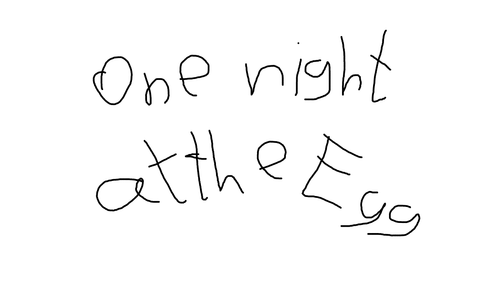 One night
at the Egg